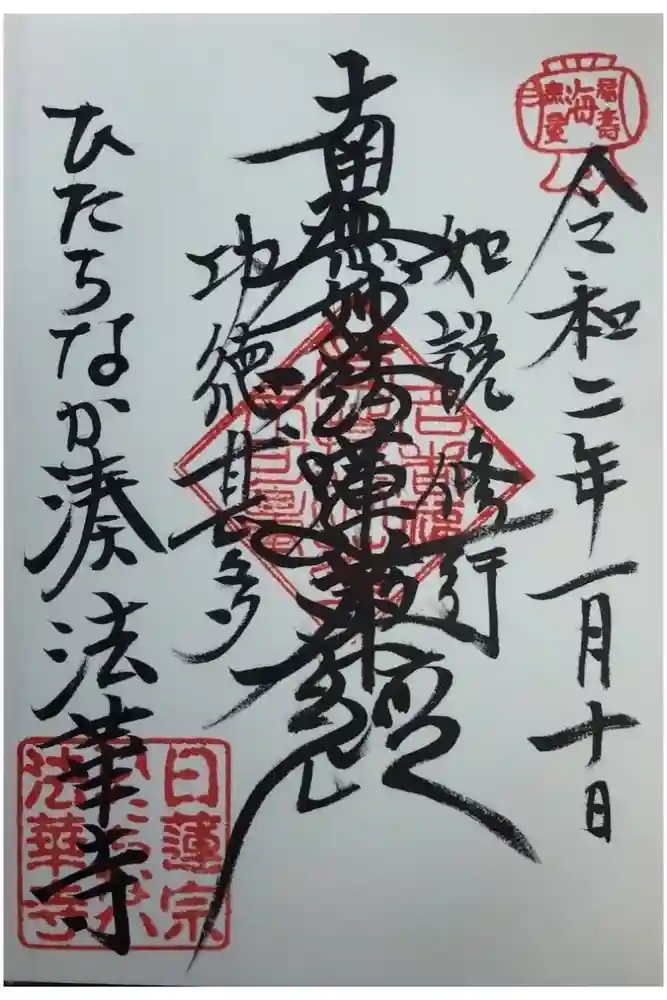 福壽
海
無量
令和二年一月十日
如説修行
南無妙法蓮華経
功徳甚多
ひたちなか湊法華寺
日蓮宗
法華寺